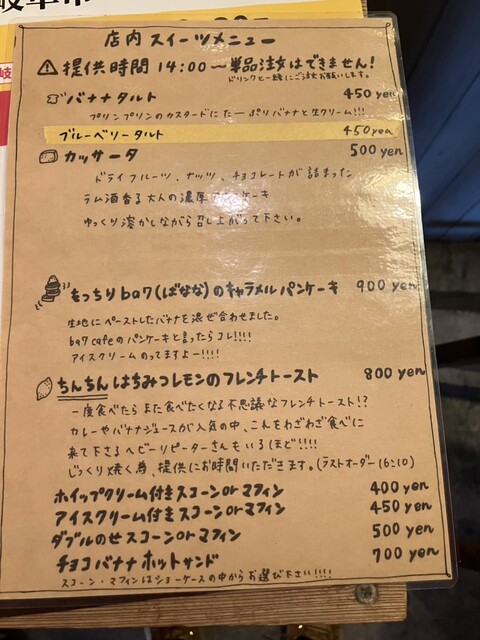 店内スイーツメニュー
⚠提供時間 14:00〜単品注文はできません!
ドリンクと一緒にご注文お願いします。
バナナタルト 450 yen
プリンプリンのカスタードにたーぷりバナナと生クリーム!!!
ブルーベリータルト 450 yen
カッサータ 500 yen
ドライフルーツ、ナッツ、チョコレートが詰まった
ラム酒香る大人の濃厚アイスケーキ
ゆっくり溶かしながら召し上がって下さい。
もっちりba7(ばなな)のキャラメルパンケーキ 900 yen
生地にペーストしたバナナを混ぜ合わせました。
ba7 cafeのパンケーキと言ったらコレ!!!!
アイスクリームのってますよー!!!!
ちんちんはちみつレモンのフレンチトースト 800 yen
一度食べたらまた食べたくなる不思議なフレンチトースト!?
カレーやバナナジュースが人気の中、これをわざわざ食べに
来て下さるヘビーリピーターさんもいるほど!!!!
じっくり焼く為、提供にお時間いただきます。(ラストオーダー16:10)
ホイップクリーム付きスコーンorマフィン 400 yen
アイスクリーム付きスコーンorマフィン 450 yen
ダブルのせスコーンorマフィン 500 yen
チョコバナナホットサンド 700 yen
スコーン・マフィンはショーケースの中からお選び下さい!!!!